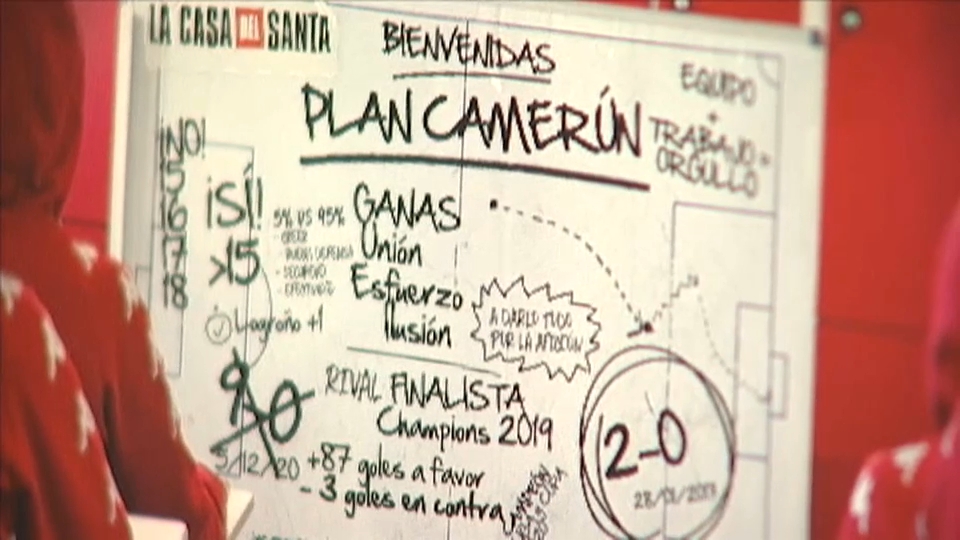 LA CASA DEL SANTA
BIENVENIDAS
PLAN CAMERÚN
EQUIPO
+
TRABAJO =
ORGULLO
¡NO!
15
16
17
18
¡SÍ!
>15
5% VS 95%
- CREER
- BUENA DEFENSA
- SEGURIDAD
GANAS
Unión
Esfuerzo
Ilusión
A DARLO TODO
POR LA AFICIÓN
Logroño +1
9-0
5/12/20
RIVAL FINALISTA
Champions 2019
+87 goles a favor
- 3 goles en contra
2-0